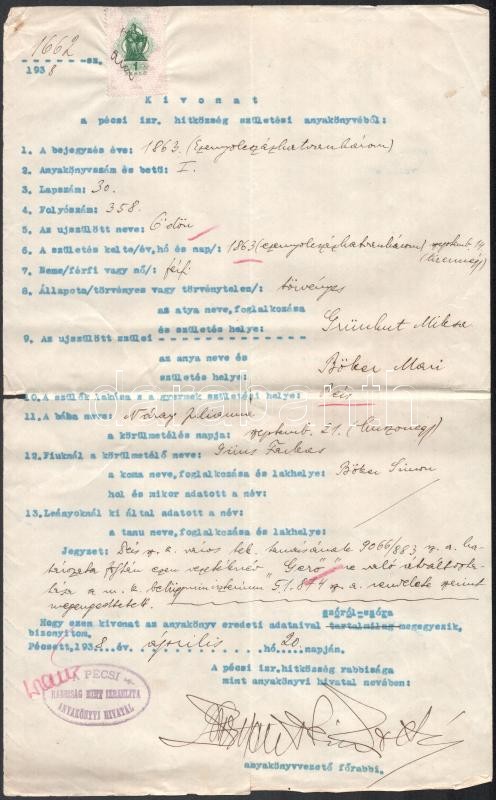 1662 sz.
1938
Kivonat
a pécsi izr. hitközség születési anyakönyvéből:
1. A bejegyzés éve: 1863. (Ezernyolcszázhatvanhárom)
2. Anyakönyvszám és betű: I.
3. Lapszám: 30.
4. Folyószám: 358.
5. Az ujszülött neve: Ödön
6. A születés kelte/év, hó és nap/: 1863 (ezernyolcszázhatvanhárom) szeptemb. 14
7. Neme/férfi vagy nő/: férfi
8. Állapota/törvényes vagy törvénytelen/: törvényes
az atya neve, foglalkozása
és születés helye: Grünhut Miksa
9. Az ujszülött szülei
az anya neve és
születés helye: Böker Mari
10. A szülők lakása s a gyermek születési helye: Pécs
11. A bába neve: Náray Julianna
a körülmetélés napja: szeptemb. 21.
12. Fiuknál a körülmetélő neve: Farkas
a koma neve, foglalkozása és lakhelye: Böker Simon
hol és mikor adatott a név:
13. Leányoknál ki által adatott a név:
a tanu neve, foglalkozása és lakhelye:
Jegyzet: Pécs sz. k. város tek. tanácsának 9066/883 sz. a. ha-
tározata folytán ezen vezetéknév "Gerő"-re való átváltozta-
tása a m. k. belügyministerium 51.874 sz. a. rendelete szerint
megengedtetett.
szóról-szóra
Hogy ezen kivonat az anyakönyv eredeti adataival tartalmilag megegyezik,
bizonyitom.
Pécsett, 1938. év április hó 20 napján.
A pécsi izr. hitközség rabbisága
mint anyakönyvi hivatal nevében:
PÉCSI
RABBISÁG MINT IZRAELITA
ANYAKÖNYVI HIVATAL
anyakönyvvezető főrabbi.
darabanth